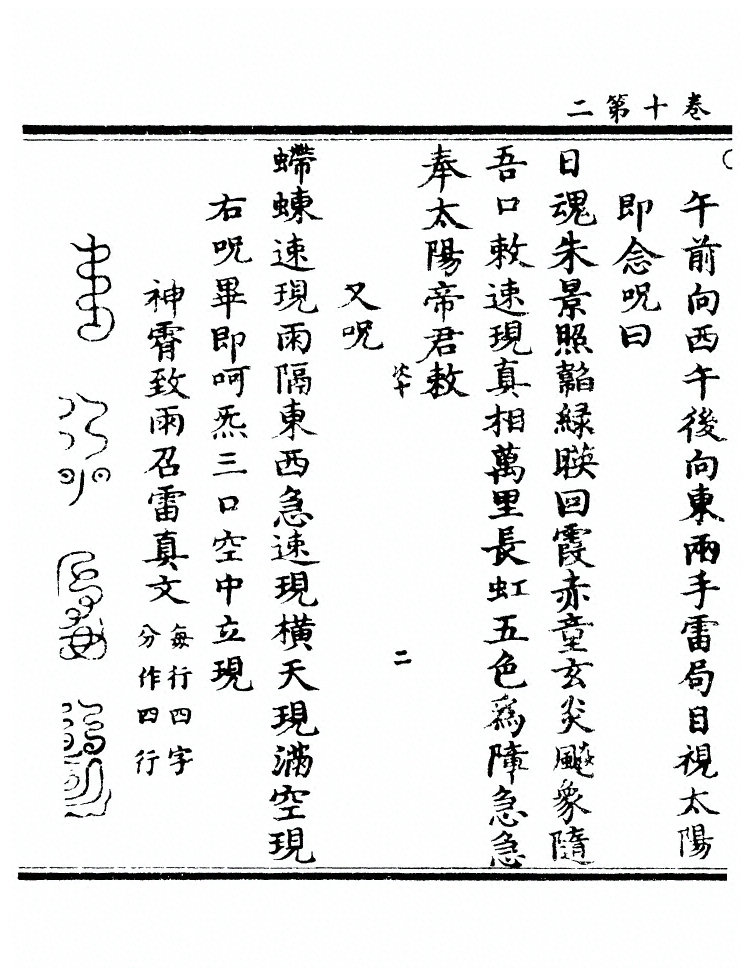 卷十第二
午前向西午後向東兩手雷局目視太陽
即念呪曰
日魂朱景照韜綠映回霞赤童玄炎飈象隨
吾口敕速現真相萬里長虹五色爲障急急
奉太陽帝君敕
二
又呪
螮蝀速現雨隔東西急速現橫天現滿空現
右呪畢即呵炁三口空中立現
神霄致雨召雷真文
每行四字
分作四行